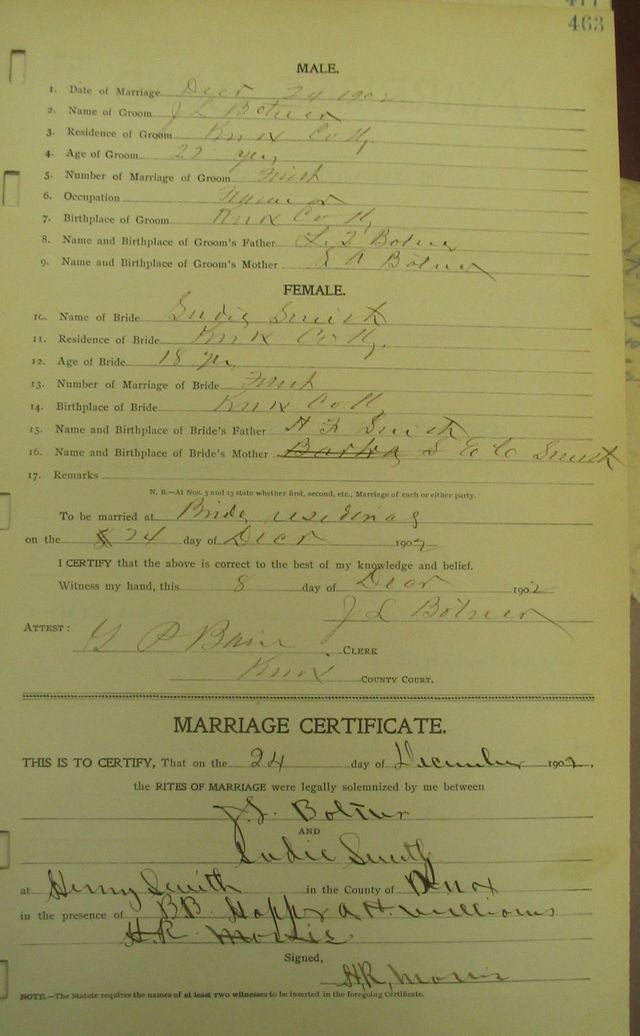 463
MALE.
1. Date of Marriage Decr 24 1902
2. Name of Groom J L Botner
3. Residence of Groom Knox Co Ky
4. Age of Groom 22 yrs
5. Number of Marriage of Groom First
6. Occupation Farmer
7. Birthplace of Groom Knox Co Ky
8. Name and Birthplace of Groom's Father Botner
9. Name and Birthplace of Groom's Mother Botner
FEMALE.
10. Name of Bride Sudie Smith
11. Residence of Bride Knox Co Ky.
12. Age of Bride 18 yrs
13. Number of Marriage of Bride First
14. Birthplace of Bride Knox Co Ky
15. Name and Birthplace of Bride's Father Smith
16. Name and Birthplace of Bride's Mother S E C Smith
17. Remarks
N. B.—At Nos. 5 and 13 state whether first, second, etc., Marriage of each or either party.
To be married at Brides residence
on the 24 day of Decr 1902
I CERTIFY that the above is correct to the best of my knowledge and belief.
Witness my hand, this 8 day of Decr 1902
J L Botner
ATTEST: CLERK
Knox COUNTY COURT.
MARRIAGE CERTIFICATE.
THIS IS TO CERTIFY, That on the 24 day of December 1902,
the RITES OF MARRIAGE were legally solemnized by me between
J. L. Botner
AND
Sudie Smith
at Henry Smith in the County of Knox
in the presence of B B Hopper A H Williams
H. R. Morris
Signed,
H. R. Morris
NOTE.—The Statute requires the names of at least two witnesses to be inserted in the foregoing Certificate.